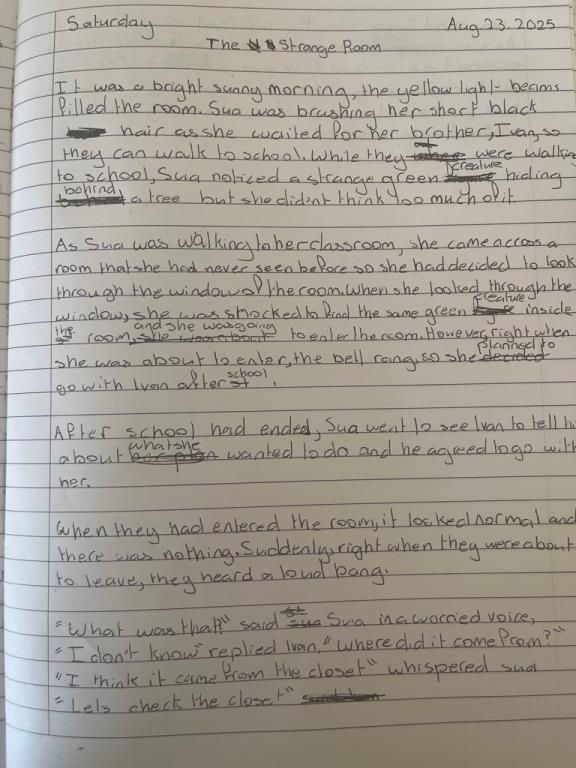 Saturday Aug 23. 2025
The Strange Room
It was a bright sunny morning, the yellow light-beams
filled the room. Sua was brushing her short black
hair as she waited for her brother, Ivan, so
they can walk to school. While they were walkin
to school, Sua noticed a strange green creature hiding
behind a tree but she didn't think too much of it.
As Sua was walking to her classroom, she came across a
room that she had never seen before so she had decided to look
through the window of the room. When she looked through the
window, she was shocked to find the same green creature inside
the room, and she was going to enter the room. However, right when
she was about to enter, the bell rang, so she planned to
go with Ivan after school.
After school had ended, Sua went to see Ivan to tell hi
about what she wanted to do and he agreed to go with
her.
When they had entered the room, it looked normal and
there was nothing. Suddenly, right when they were about
to leave, they heard a loud bang.
"What was that?" said Sua in a worried voice,
"I don't know" replied Ivan, "where did it come from?"
"I think it came from the closet" whispered sua
"Lets check the closet"